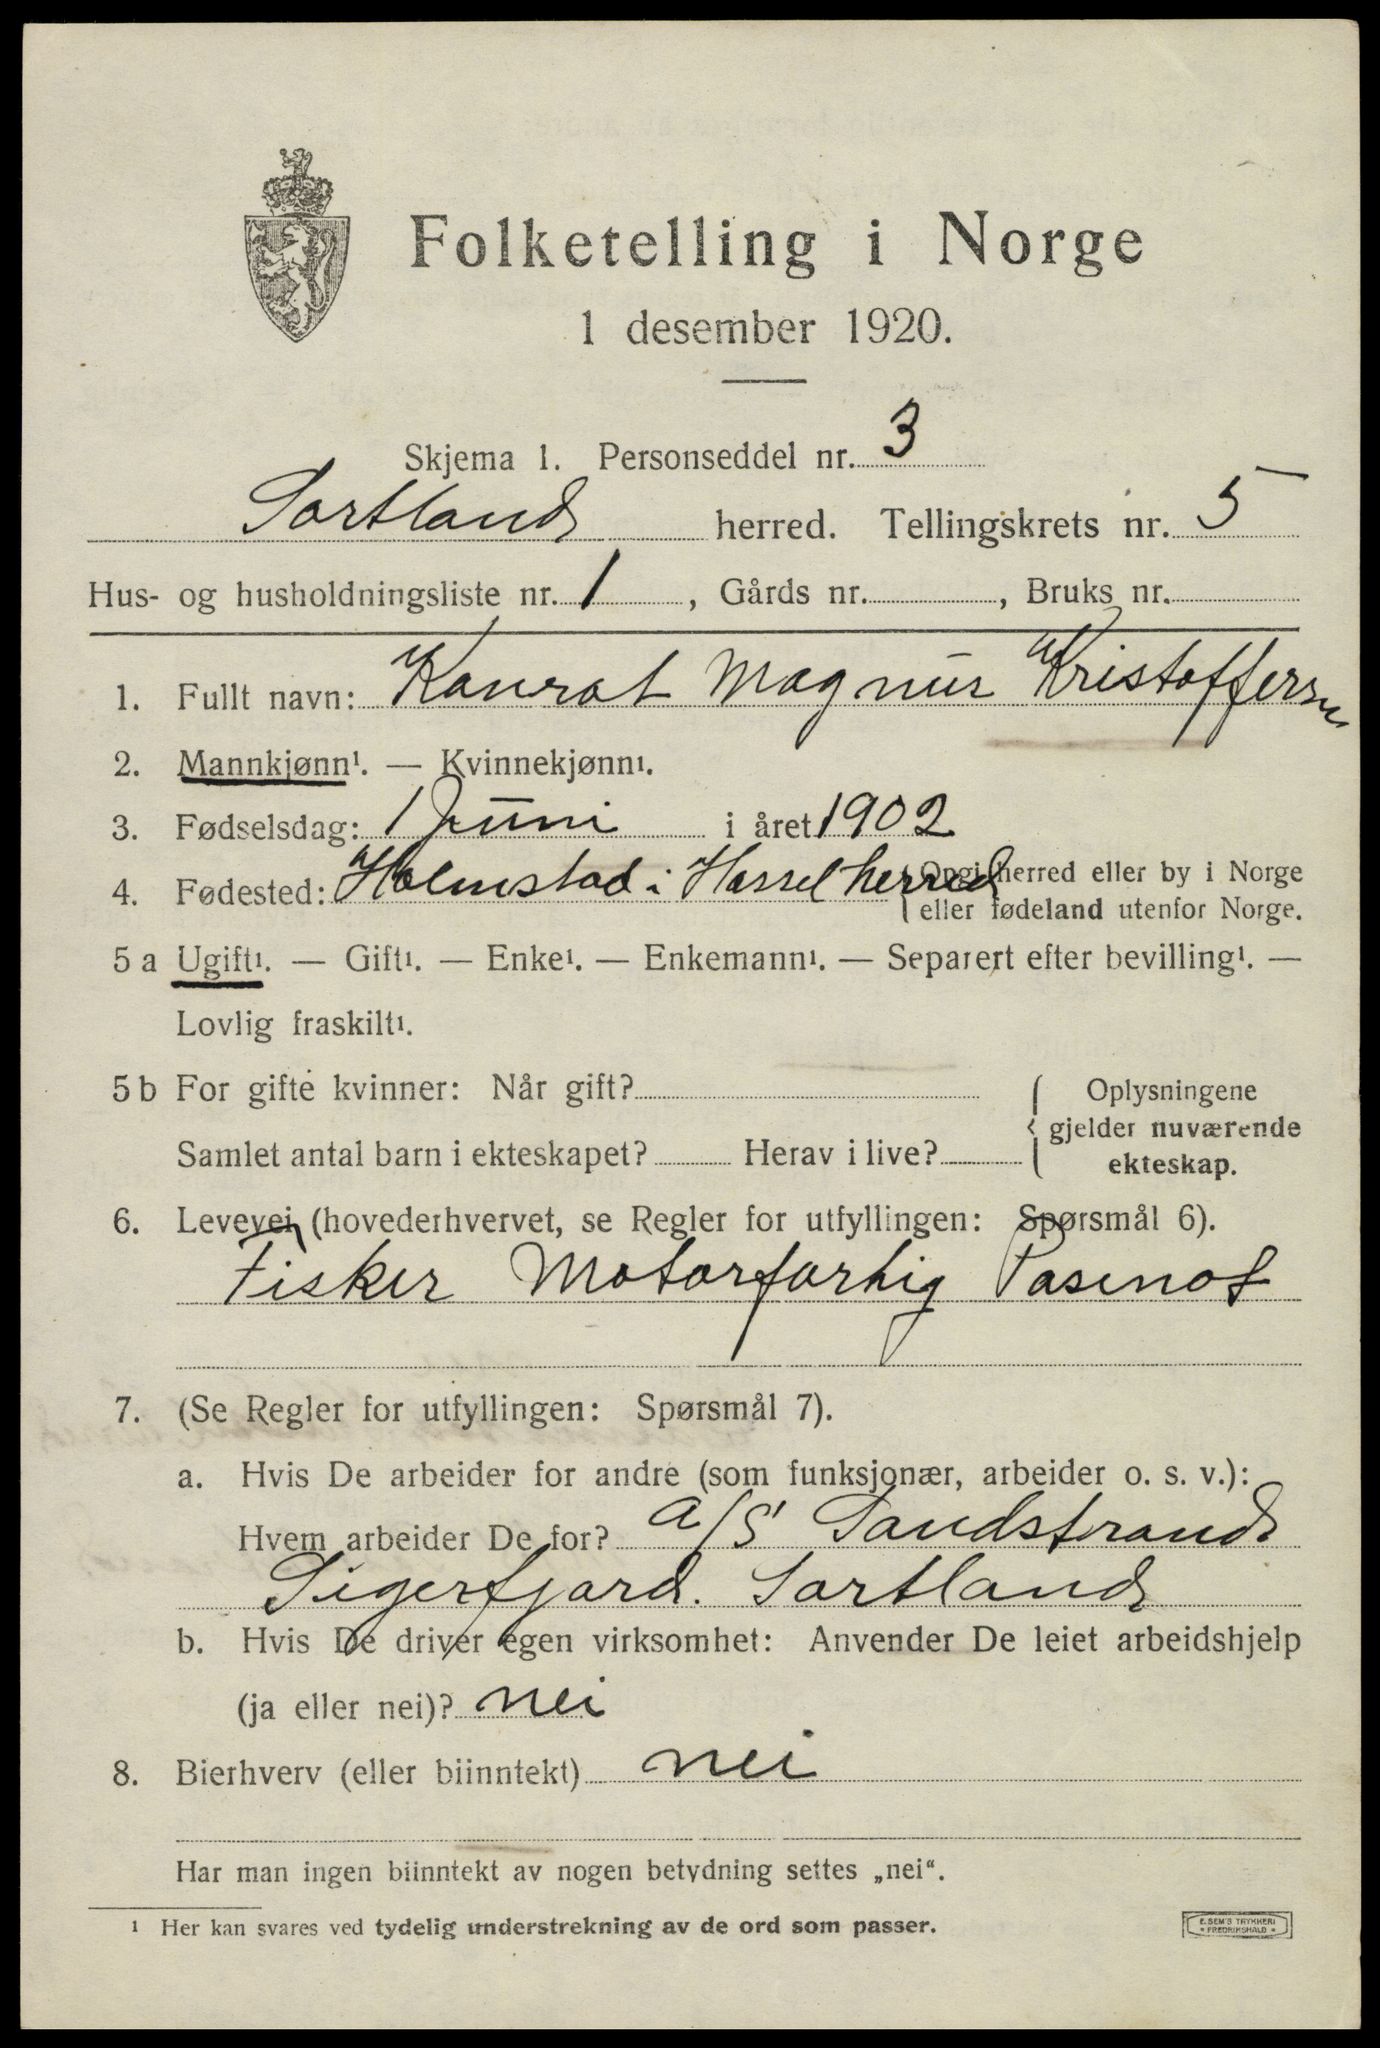 Folketelling i Norge
1 desember 1920.
Skjema 1. Personseddel nr. 3
Sortland herred. Tellingskrets nr. 5
Hus- og husholdningsliste nr. 1, Gårds nr. , Bruks nr.
1. Fullt navn: Konrat Magnus Kristoffersen
2. Mannkjønn¹. — Kvinnekjønn¹.
3. Fødselsdag: 1 Juni i året 1902
4. Fødested: Holmstad i Hassel herred { Opgi herred eller by i Norge
eller fødeland utenfor Norge.
5 a Ugift¹. — Gift¹. — Enke¹. — Enkemann¹. — Separert efter bevilling¹. —
Lovlig fraskilt¹.
5 b For gifte kvinner: Når gift? { Oplysningene
gjelder nuværende
Samlet antal barn i ekteskapet? Herav i live?
ekteskap.
6. Levevei (hovederhvervet, se Regler for utfyllingen: Spørsmål 6).
Fisker Motorfartig
7. (Se Regler for utfyllingen: Spørsmål 7).
a. Hvis De arbeider for andre (som funksjonær, arbeider o. s. v.):
Hvem arbeider De for? A/S Sandstrand
Sigerfjord. Sortland
b. Hvis De driver egen virksomhet: Anvender De leiet arbeidshjelp
(ja eller nei)? nei
8. Bierhverv (eller biinntekt) nei
Har man ingen biinntekt av nogen betydning settes „nei“.
¹ Her kan svares ved tydelig understrekning av de ord som passer.
E. SEM'S TRYKKERI
* FREDRIKSHALD *